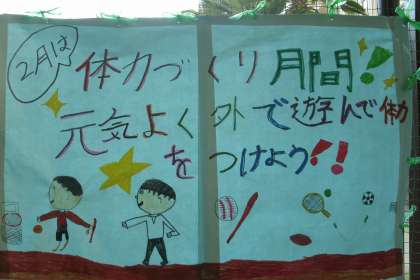 2月は
体力づくり月間!
元気よく外で遊んで体力
をつけよう!!